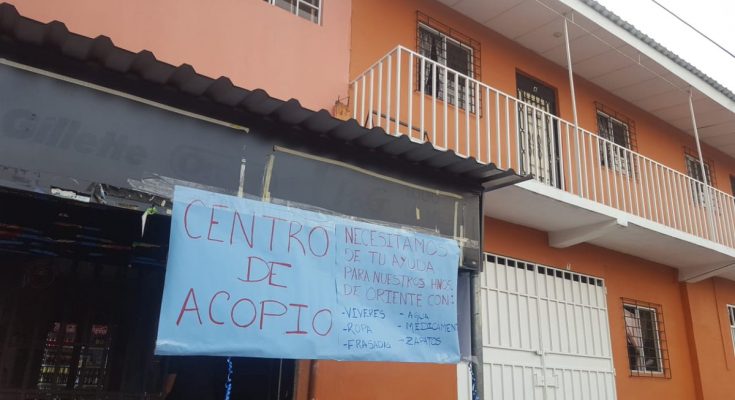 Gillette
CENTRO
DE
ACOPIO
NECESITAMOS
DE TU AYUDA
PARA NUESTROS HNOS.
DE ORIENTE CON:
-VIVERES
-ROPA
-FRASADAS
-AGUA
-MEDICAMENT
-ZAPATOS